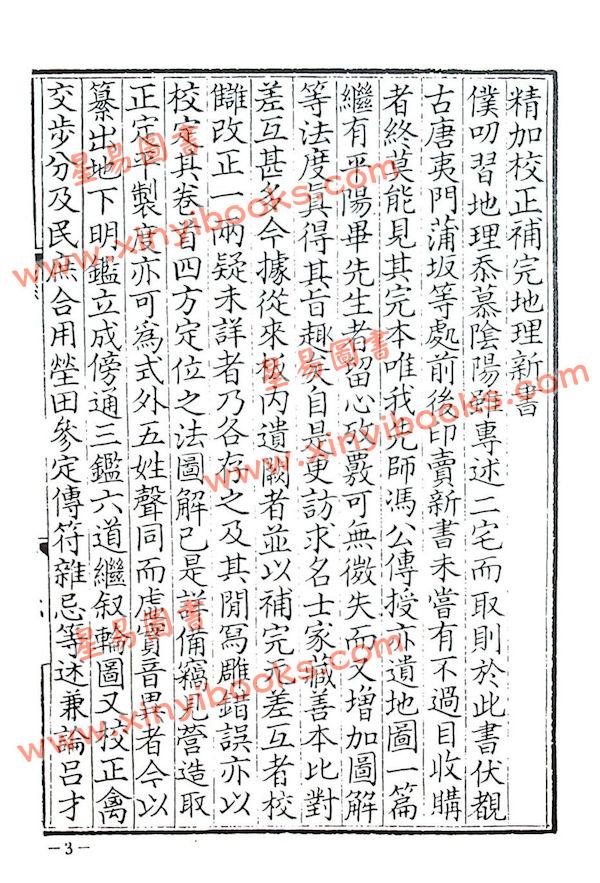 精加校正補完地理新書
僕叨習地理忝慕陰陽雖專述二宅而取則於此書伏覩
古唐夷門蒲坂等處前後印賣新書未嘗有不過目收購
者終莫能見其完本唯我先師馮公傳授亦遺地圖一篇
繼有平陽畢先生者留心攷覈可無微失而又增加圖解
等法度眞得其旨趣矣自是更訪求名士家藏善本比對
差互甚多今據從來板内遺闕者並以補完元差互者校
讎改正一兩疑未詳者乃各存之及其閒寫雕錯誤亦以
校定其卷首四方定位之法圖解已是詳備竊見營造取
正定平製度亦可爲式外五姓聲同而虛實音異者今以
纂出地下明鑑立成傍通三鑑六道繼叙輪圖又校正禽
交步分及民庶合用塋田參定傳符雜忌等述兼論呂才
星易圖書
www.xinyibooks.com
星易圖書
www.xinyibooks.com
星易圖書
www.xinyibooks.com
-3-